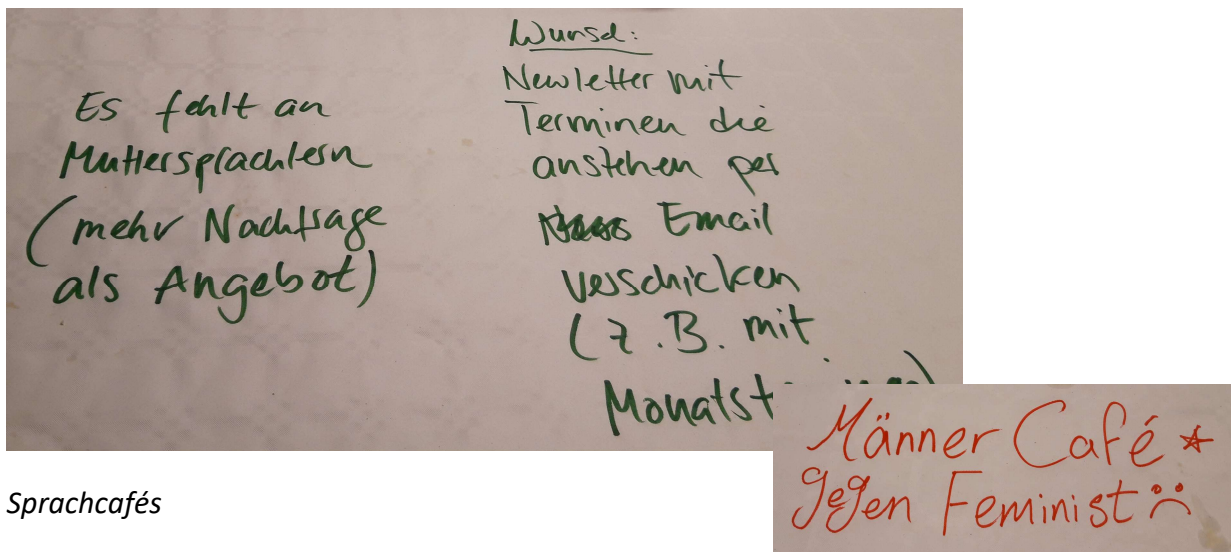 Es fehlt an
Muttersprachlern
(mehr Nachfrage
als Angebot)
Wunsch:
Newletter mit
Terminen die
anstehen per
Email
verschicken
(z.B. mit
Männer Café ☆
gegen Feminist ☹
Sprachcafés